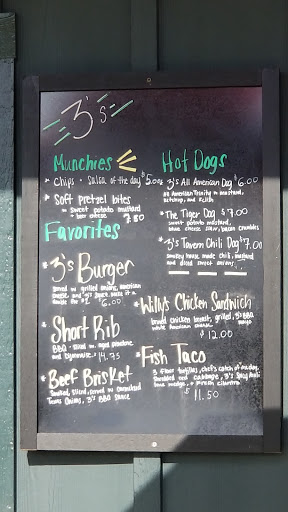 3's
Munchies
* Chips + Salsa of the day $5.00
* Soft pretzel bites
w/ sweet potato mustard
+ beer cheese 7.50
Favorites
* 3's Burger
served w/ grilled onions, American
cheese and
single for $6.00
* Short Rib
BBQ sliced w/ aged provolone
14.75
* Beef Brisket
Smoked, sliced, served w/ caramelized
Texas Onions, 3's BBQ sauce
Hot Dogs
* 3's All American Dog $6.00
All American Trinity - mustard,
ketchup, and relish
* The Tiger Dog $7.00
sweet potato mustard,
blue cheese slaw, bacon crumbles
* 3's Tavern Chili Dog $7.00
smokey house made chili, mustard
and diced sweet onions
* Willy's Chicken Sandwich
chicken breast, grilled, 3's BBQ
white American cheese
$12.00
* Fish Taco
3 flour tortillas, chef's catch of the day,
shredded cabbage, 3's Spicy Aioli
lime wedge, + fresh cilantro
$11.50